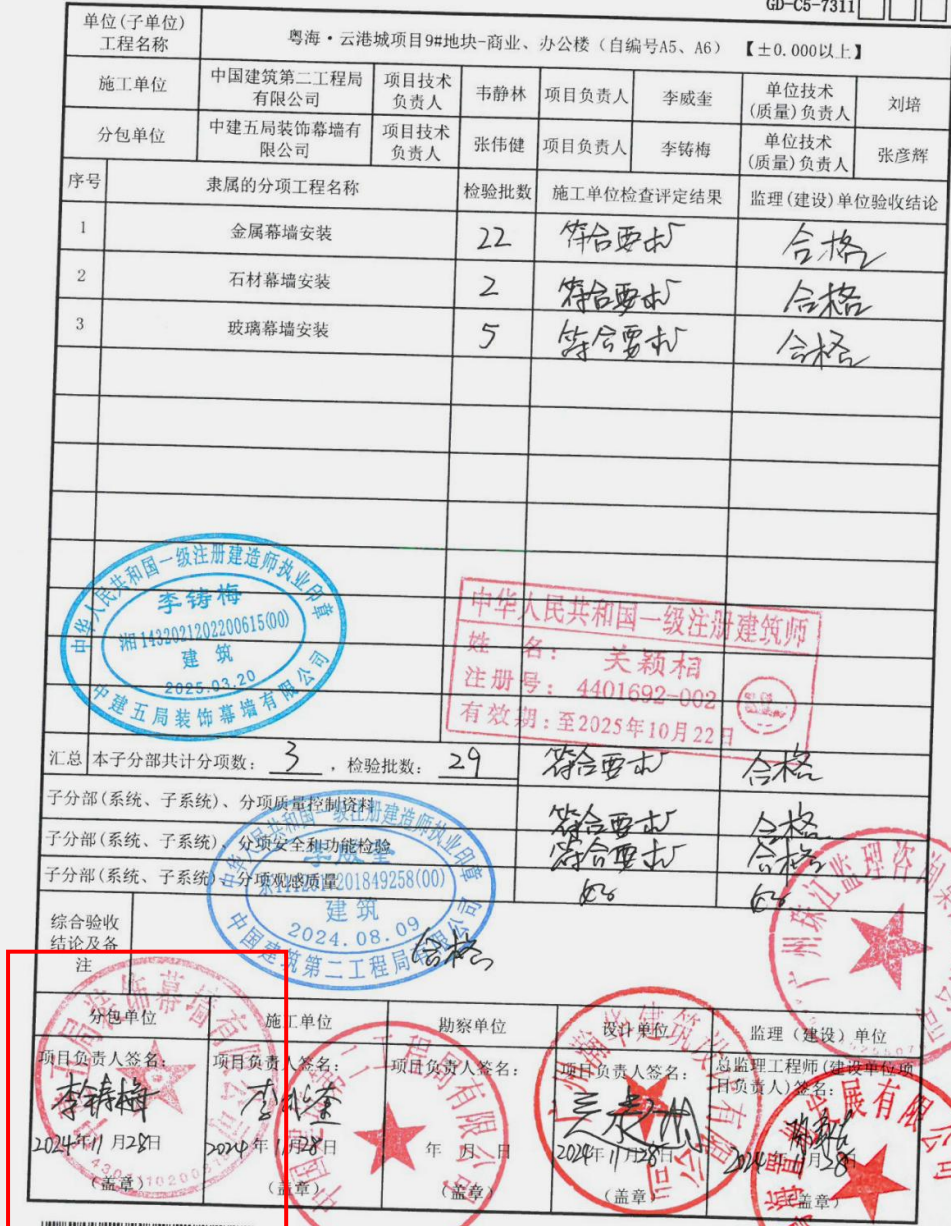 GD-C5-7311
单位(子单位)工程名称 粤海·云港城项目9#地块-商业、办公楼（自编号A5、A6） 【±0.000以上】
施工单位 中国建筑第二工程局有限公司 项目技术负责人 韦静林 项目负责人 李威奎 单位技术(质量)负责人 刘培
分包单位 中建五局装饰幕墙有限公司 项目技术负责人 张伟健 项目负责人 李铸梅 单位技术(质量)负责人 张彦辉
序号 隶属的分项工程名称 检验批数 施工单位检查评定结果 监理(建设)单位验收结论
1 金属幕墙安装 22 符合要求 合格
2 石材幕墙安装 2 符合要求 合格
3 玻璃幕墙安装 5 符合要求 合格
中华人民共和国一级注册建造师执业印章
李铸梅
湘1432021202200615(00)
建筑
2025.03.20
中建五局装饰幕墙有限公司
中华人民共和国一级注册建筑师
姓 名： 关颖相
注册号： 4401692-002
有效期：至2025年10月22日
汇总 本子分部共计分项数： 3 ，检验批数： 29 符合要求 合格
子分部(系统、子系统)、分项质量控制资料 符合要求 合格
子分部(系统、子系统)、分项安全和功能检验 符合要求 合格
子分部(系统、子系统)、分项观感质量 好 好
中华人民共和国一级注册建造师执业印章
李威奎
201849258(00)
建筑
2024.08.09
中国建筑第二工程局有限公司
综合验收结论及备注 合格
广州珠江监理咨询
分包单位 施工单位 勘察单位 设计单位 监理（建设）单位
项目负责人签名： 项目负责人签名： 项目负责人签名： 项目负责人签名： 总监理工程师(建设单位项目负责人)签名：
李铸梅 李威奎
2024年11月28日 2024年11月28日 年 月 日 2024年11月28日 2024年11月28日
(盖章) (盖章) (盖章) (盖章) (盖章)